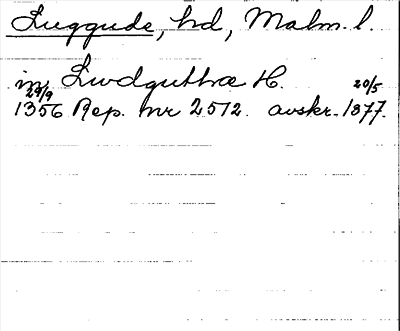 Luggude, hd, Malm. l.
in Liwdguthræ H.
29/9 20/5
1356 Rep. nr 2512. avskr. 1377.